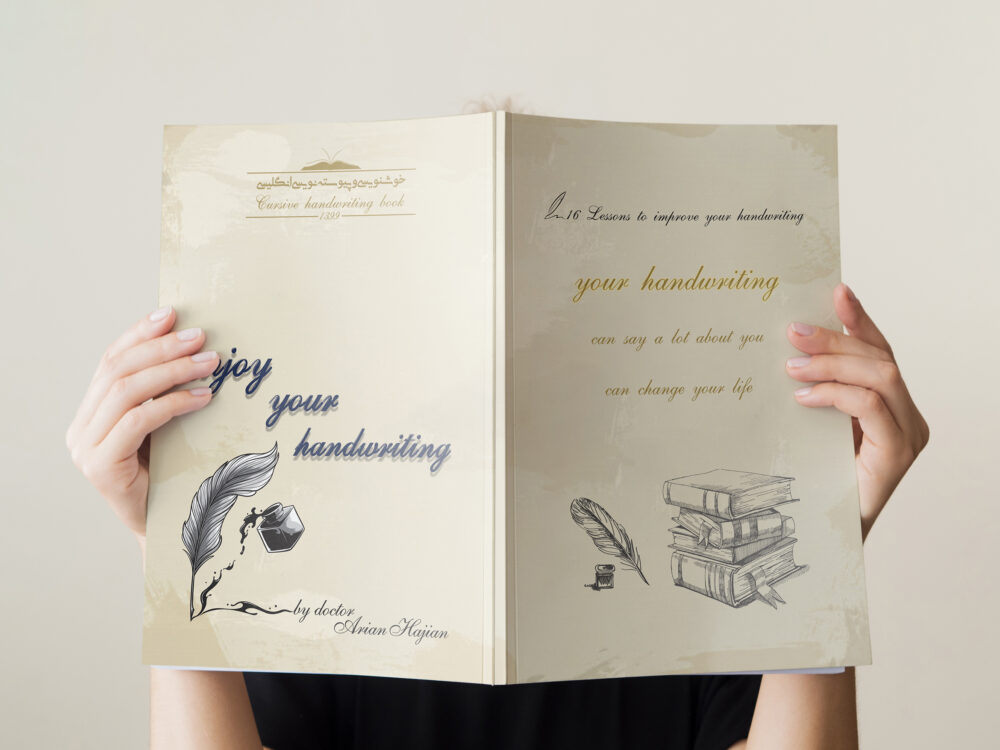 خوشنویسی و پیوسته نویسی انگلیسی
Cursive handwriting book
1399
njoy
your
handwriting
by doctor
Arian Hajian
16 Lessons to improve your handwriting
your handwriting
can say a lot about you
can change your life